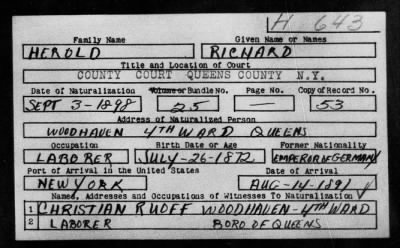 H 643
Family Name Given Name or Names
HEROLD RICHARD
Title and Location of Court
COUNTY COURT QUEENS COUNTY N.Y.
Date of Naturalization Volume or Bundle No. Page No. Copy of Record No.
SEPT 3-1898 25 — 53
Address of Naturalized Person
WOODHAVEN 4TH WARD QUEENS
Occupation Birth Date or Age Former Nationality
LABORER JULY-26-1872 EMPEROR OF GERMANY
Port of Arrival in the United States Date of Arrival
NEW YORK AUG-14-1891
Names, Addresses and Occupations of Witnesses To Naturalization
1 CHRISTIAN RUOFF WOODHAVEN-4TH WARD
2 LABORER BORO OF QUEENS